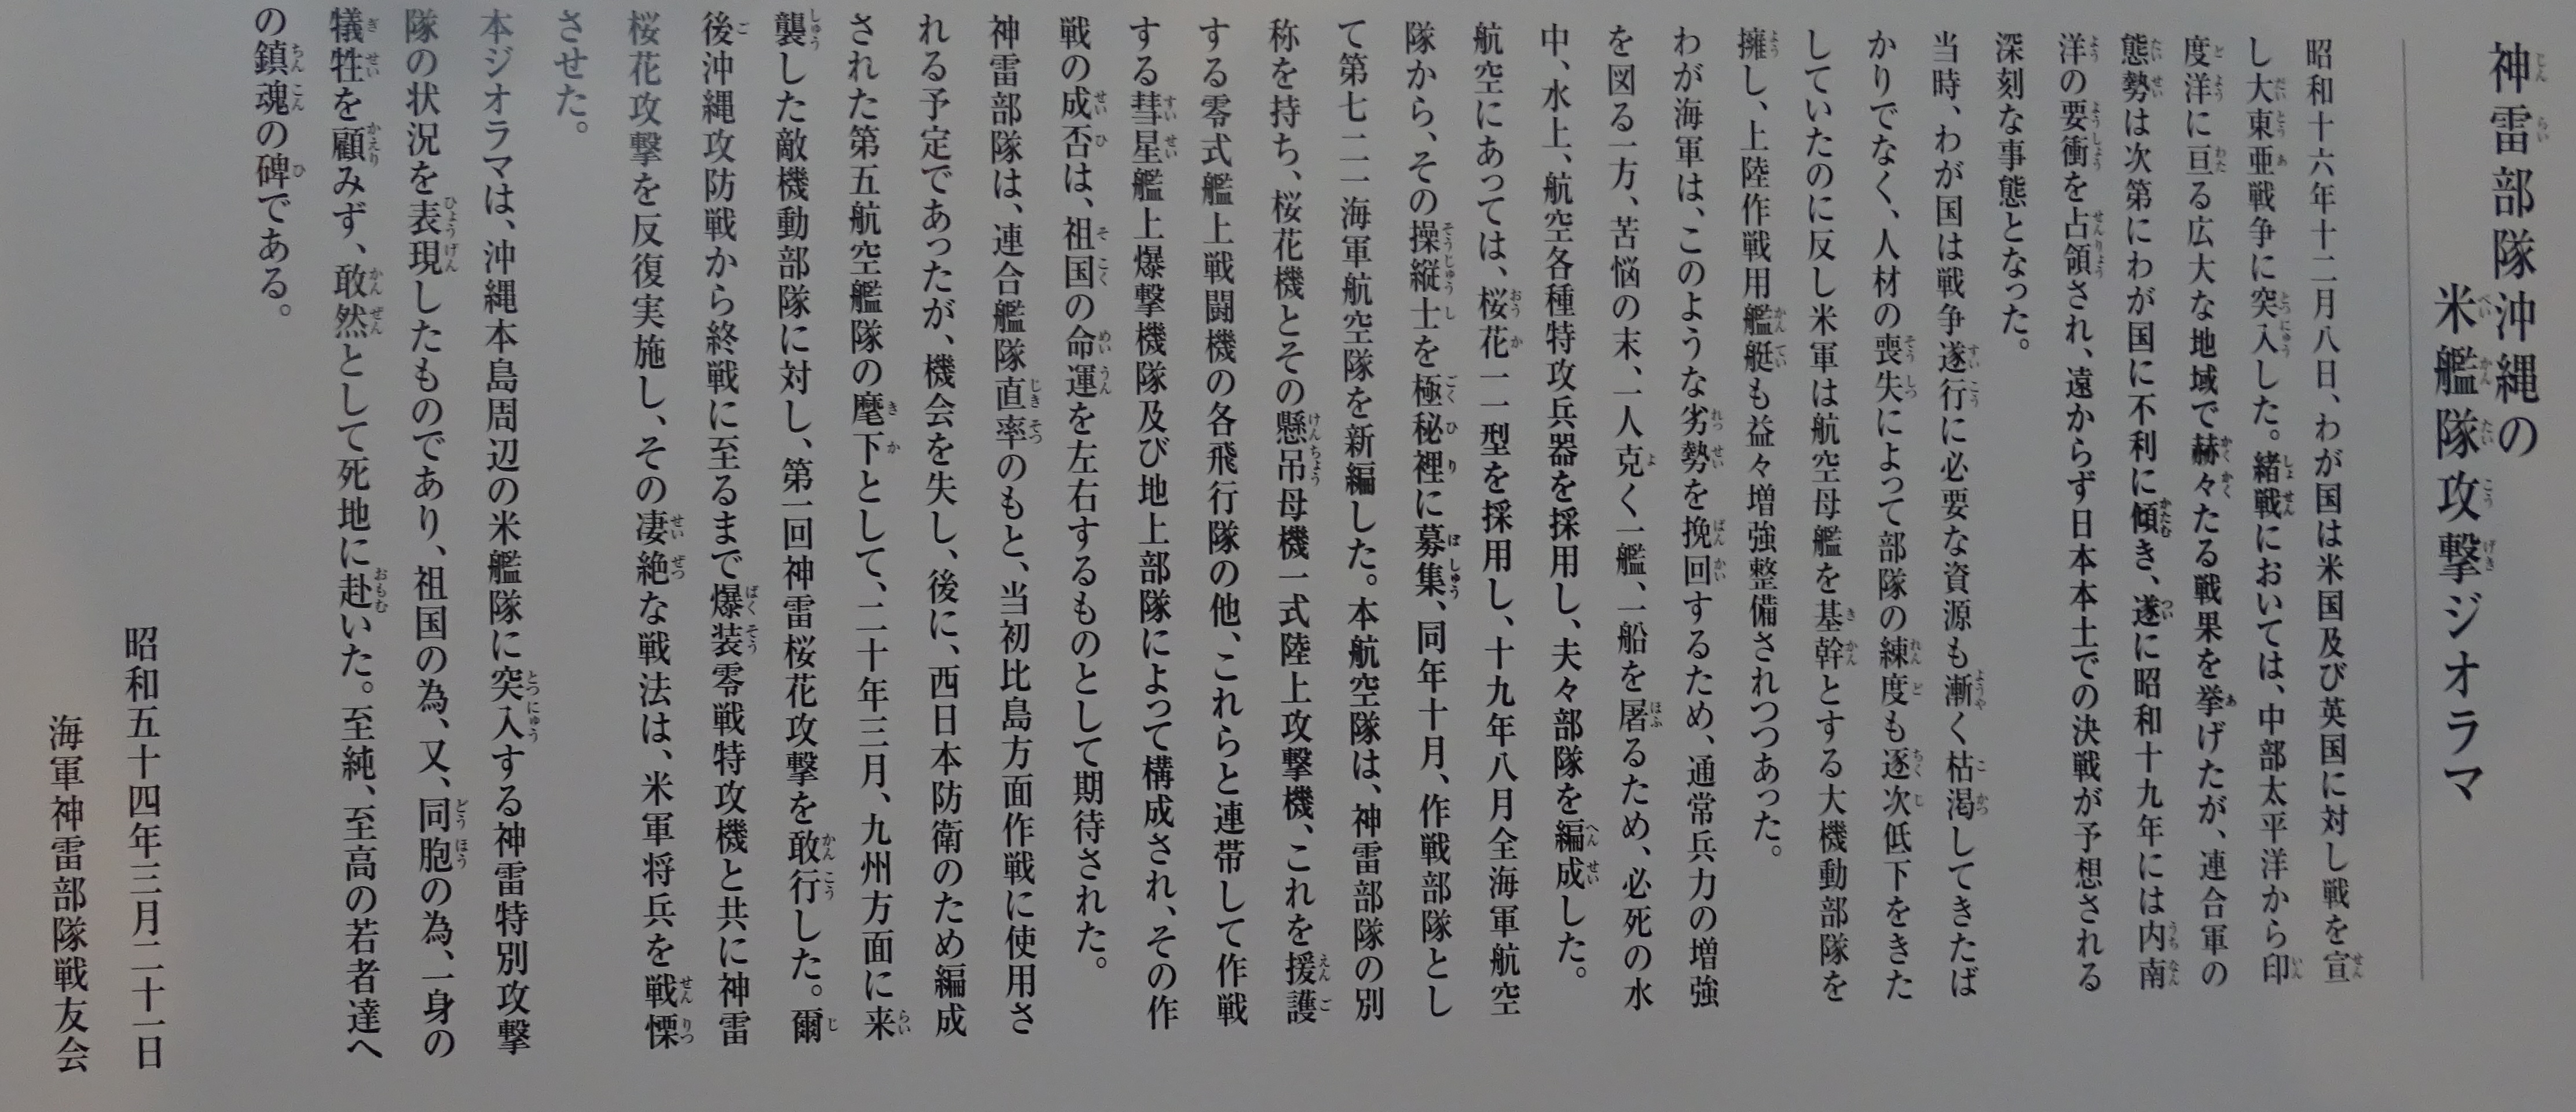 神雷部隊沖縄の
米艦隊攻撃ジオラマ
昭和十六年十二月八日、わが国は米国及び英国に対し戦を宣
し大東亜戦争に突入した。緒戦においては、中部太平洋から印
度洋に亘る広大な地域で赫々たる戦果を挙げたが、連合軍の
態勢は次第にわが国に不利に傾き、遂に昭和十九年には内南
洋の要衝を占領され、遠からず日本本土での決戦が予想される
深刻な事態となった。
当時、わが国は戦争遂行に必要な資源も漸く枯渇してきたば
かりでなく、人材の喪失によって部隊の練度も逐次低下をきた
していたのに反し米軍は航空母艦を基幹とする大機動部隊を
擁し、上陸作戦用艦艇も益々増強整備されつつあった。
わが海軍は、このような劣勢を挽回するため、通常兵力の増強
を図る一方、苦悩の末、一人克く一艦、一船を屠るため、必死の水
中、水上、航空各種特攻兵器を採用し、夫々部隊を編成した。
航空にあっては、桜花一一型を採用し、十九年八月全海軍航空
隊から、その操縦士を極秘裡に募集、同年十月、作戦部隊とし
て第七二一海軍航空隊を新編した。本航空隊は、神雷部隊の別
称を持ち、桜花機とその懸吊母機一式陸上攻撃機、これを援護
する零式艦上戦闘機の各飛行隊の他、これらと連帯して作戦
する彗星艦上爆撃機隊及び地上部隊によって構成され、その作
戦の成否は、祖国の命運を左右するものとして期待された。
神雷部隊は、連合艦隊直率のもと、当初比島方面作戦に使用さ
れる予定であったが、機会を失し、後に、西日本防衛のため編成
された第五航空艦隊の麾下として、二十年三月、九州方面に来
襲した敵機動部隊に対し、第一回神雷桜花攻撃を敢行した。爾
後沖縄攻防戦から終戦に至るまで爆装零戦特攻機と共に神雷
桜花攻撃を反復実施し、その凄絶な戦法は、米軍将兵を戦慄
させた。
本ジオラマは、沖縄本島周辺の米艦隊に突入する神雷特別攻撃
隊の状況を表現したものであり、祖国の為、又、同胞の為、一身の
犠牲を顧みず、敢然として死地に赴いた。至純、至高の若者達へ
の鎮魂の碑である。
昭和五十四年三月二十一日
海軍神雷部隊戦友会